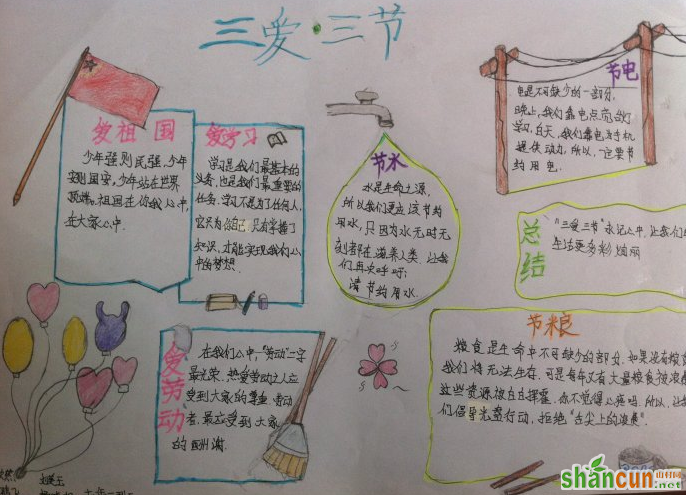 三爱·三节
爱祖国
少年强则民强,少年
强则国安,少年站在世界
顶端。祖国在你我心中,
在大家心中.
爱学习
学习是我们最基本的
义务,也是我们最重要的
任务.学习不是为了任何人,
它只为你自己.只有掌握了
知识,才能实现我们心
中的梦想.
节水
水是生命之源,
所以我们更应该节约
用水,只因为水无时无
刻都在滋养人类.让我
们再次呼吁:
请节约用水.
节电
电是不可缺少的一部分.
晚上,我们靠电点亮台灯
学习,白天,我们靠电给手机
提供动力,所以,一定要节
约用电.
总结
"三爱三节"永记心中,让我们的
生活更多彩绚丽
爱劳动
在我们心中,"劳动"二字
最光荣,热爱劳动之人应
受到大家的尊重.劳动
者,最应受到大家
的酬谢.
节粮
粮食是生命中不可缺少的部分.如果没有粮食
我们将无法生存.可是每年又有大量粮食被浪费
这些资源被白白挥霍.你不觉得心痛吗.所以,让我
们倡导光盘行动,拒绝"舌尖上的浪费"
shancun 山村网
.net